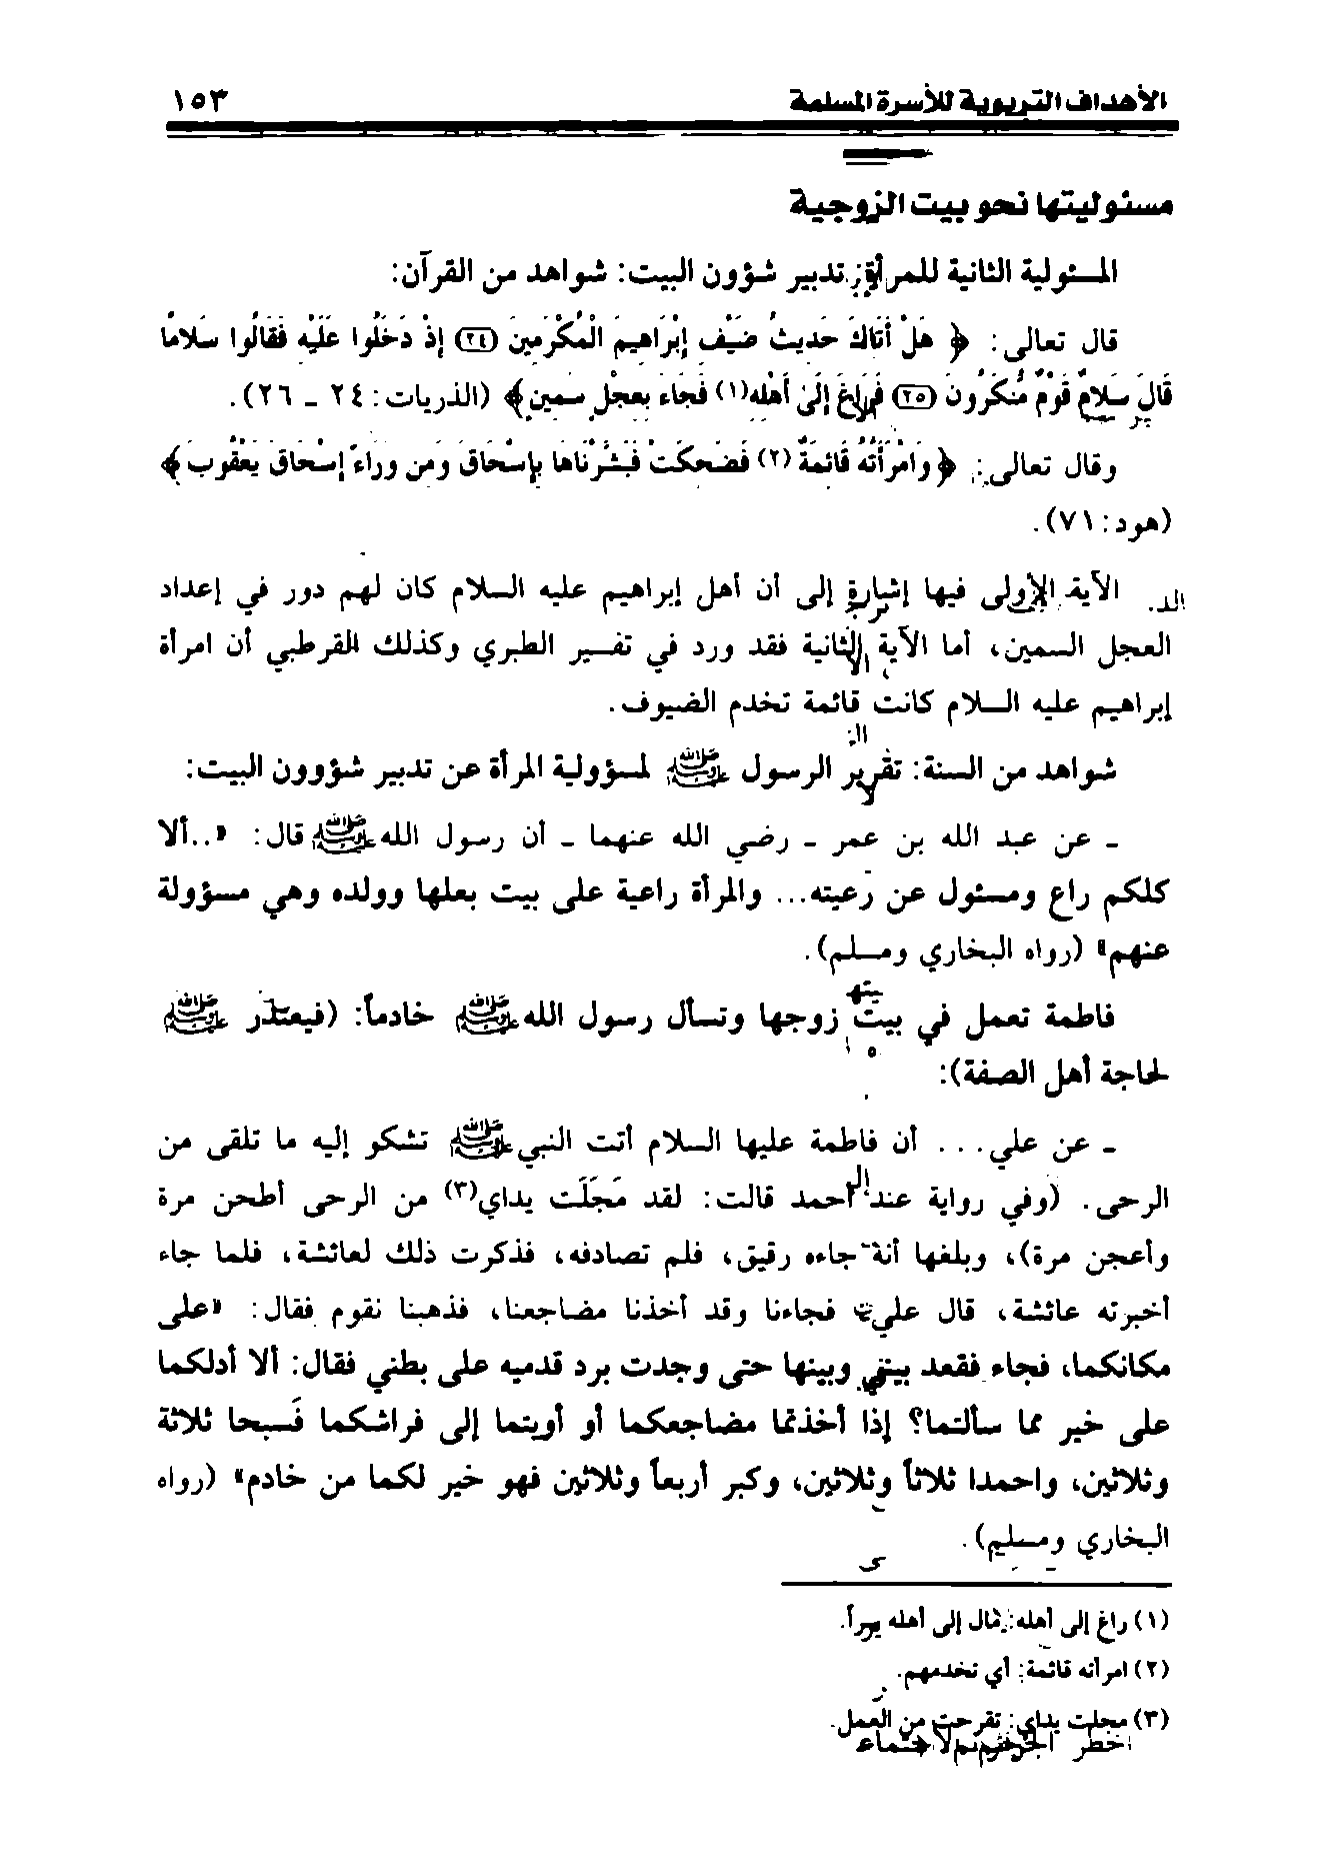 الأهداف التربوية للأسرة المسلمة ١٥٣
مسئوليتها نحو بيت الزوجية
المسئولية الثانية للمرأة: تدبير شؤون البيت: شواهد من القرآن:
قال تعالى: ﴿ هَلْ أَتَاكَ حَدِيثُ ضَيْفِ إِبْرَاهِيمَ الْمُكْرَمِينَ (٢٤) إِذْ دَخَلُوا عَلَيْهِ فَقَالُوا سَلَامًا
قَالَ سَلَامٌ قَوْمٌ مُّنكَرُونَ (٢٥) فَرَاغَ إِلَىٰ أَهْلِهِ(١) فَجَاءَ بِعِجْلٍ سَمِينٍ﴾ (الذريات: ٢٤ ـ ٢٦).
وقال تعالى: ﴿ وَامْرَأَتُهُ قَائِمَةٌ (٢) فَضَحِكَتْ فَبَشَّرْنَاهَا بِإِسْحَاقَ وَمِن وَرَاءِ إِسْحَاقَ يَعْقُوبَ ﴾
(هود: ٧١).
الآية الأولى فيها إشارة إلى أن أهل إبراهيم عليه السلام كان لهم دور في إعداد
العجل السمين، أما الآية الثانية فقد ورد في تفسير الطبري وكذلك القرطبي أن امرأة
إبراهيم عليه السلام كانت قائمة تخدم الضيوف.
شواهد من السنة: تقرير الرسول ﷺ لمسؤولية المرأة عن تدبير شؤوون البيت:
ـ عن عبد الله بن عمر ـ رضي الله عنهما ـ أن رسول الله ﷺ قال: «..ألا
كلكم راع ومسئول عن رعيته... والمرأة راعية على بيت بعلها وولده وهي مسؤولة
عنهم» (رواه البخاري ومسلم).
فاطمة تعمل في بيت زوجها وتسأل رسول الله ﷺ خادماً: (فيعتذر ﷺ
لحاجة أهل الصفة):
ـ عن علي... أن فاطمة عليها السلام أتت النبي ﷺ تشكو إليه ما تلقى من
الرحى. (وفي رواية عند أحمد قالت: لقد مَجَلَت يداي(٣) من الرحى أطحن مرة
وأعجن مرة)، وبلغها أنه جاءه رقيق، فلم تصادفه، فذكرت ذلك لعائشة، فلما جاء
أخبرته عائشة، قال علي: فجاءنا وقد أخذنا مضاجعنا، فذهبنا نقوم فقال: «على
مكانكما، فجاء فقعد بيني وبينها حتى وجدت برد قدميه على بطني فقال: ألا أدلكما
على خير مما سألتما؟ إذا أخذتما مضاجعكما أو أويتما إلى فراشكما فَسبحا ثلاثة
وثلاثين، واحمدا ثلاثاً وثلاثين، وكبر أربعاً وثلاثين فهو خير لكما من خادم» (رواه
البخاري ومسليم).
(١) راغ إلى أهله: مال إلى أهله سراً.
(٢) امرأته قائمة: أي تخدمهم.
(٣) مجلت يداي: تقرحت من العمل.